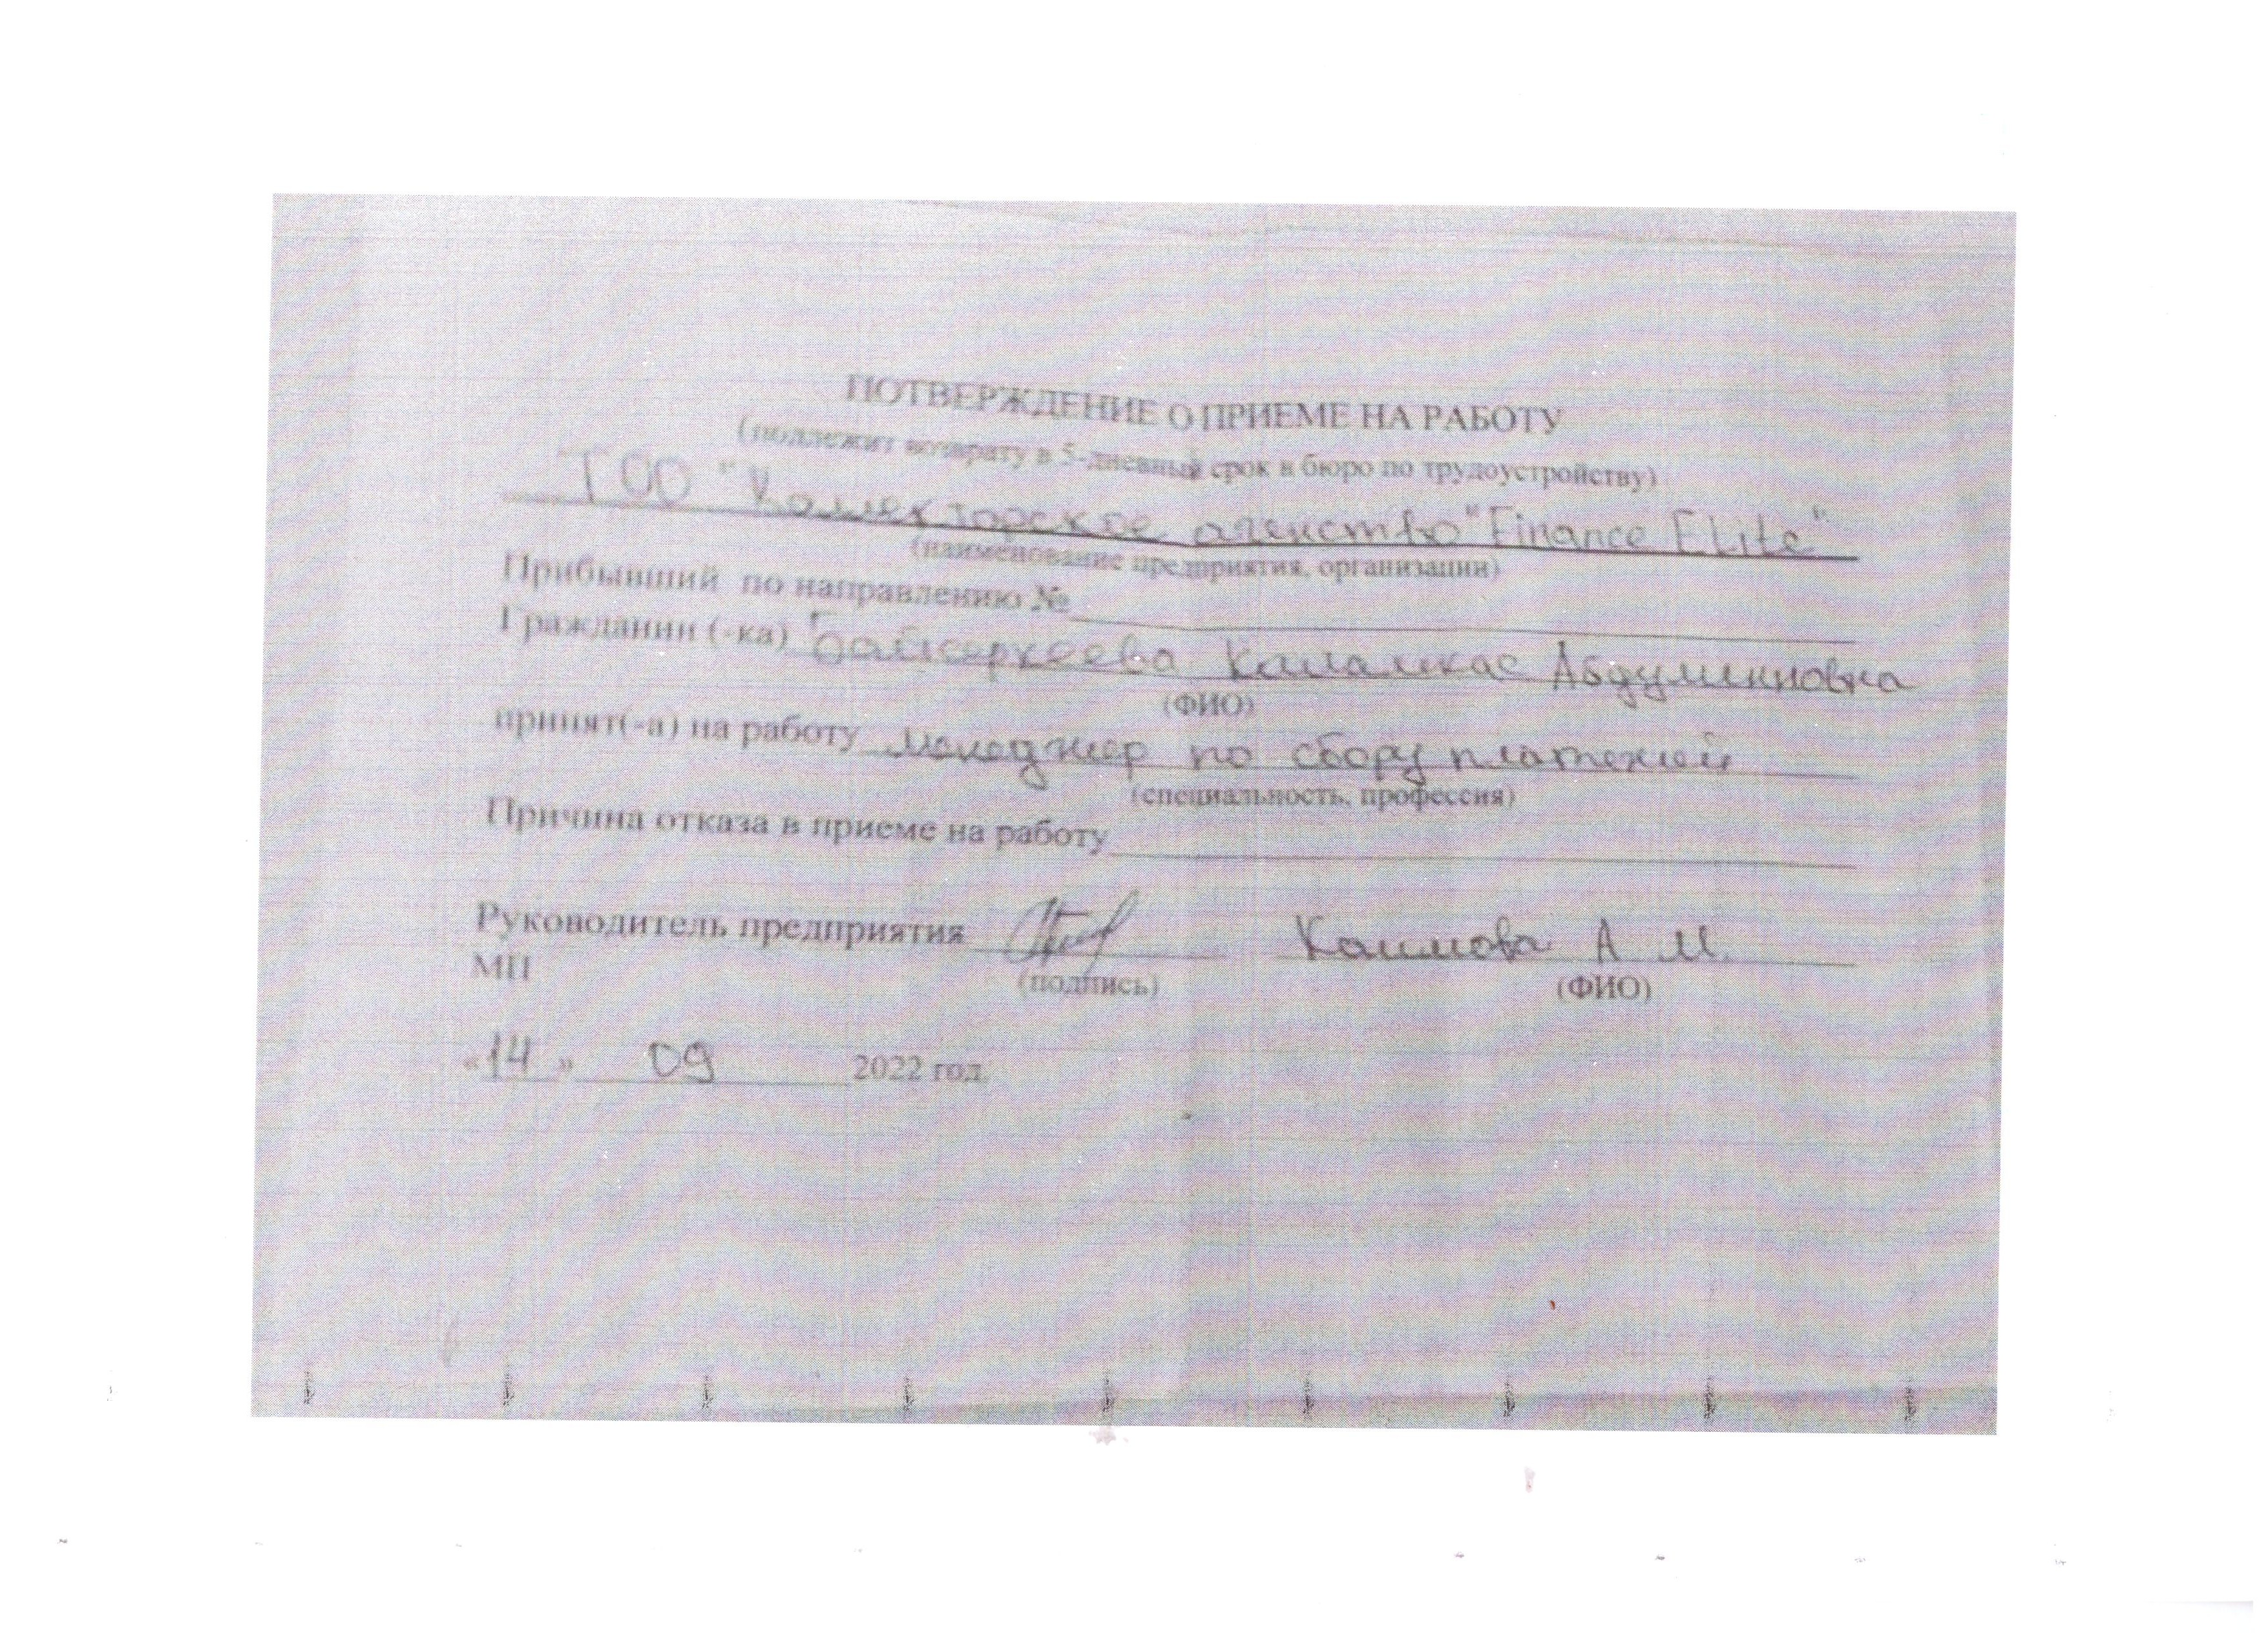 ПОТВЕРЖДЕНИЕ О ПРИЕМЕ НА РАБОТУ
(подлежит возврату в 5-дневный срок в бюро по трудоустройству)
ТОО "Коллекторское агенство "Finance Elite"
(наименование предприятия, организации)
Прибывший по направлению №
Гражданин (-ка) Байсеркеева Каламкас
(ФИО)
принят(-а) на работу менеджер по сбору платежей
(специальность, профессия)
Причина отказа в приеме на работу
Руководитель предприятия А М.
МП (подпись) (ФИО)
«14» 09 2022 год.